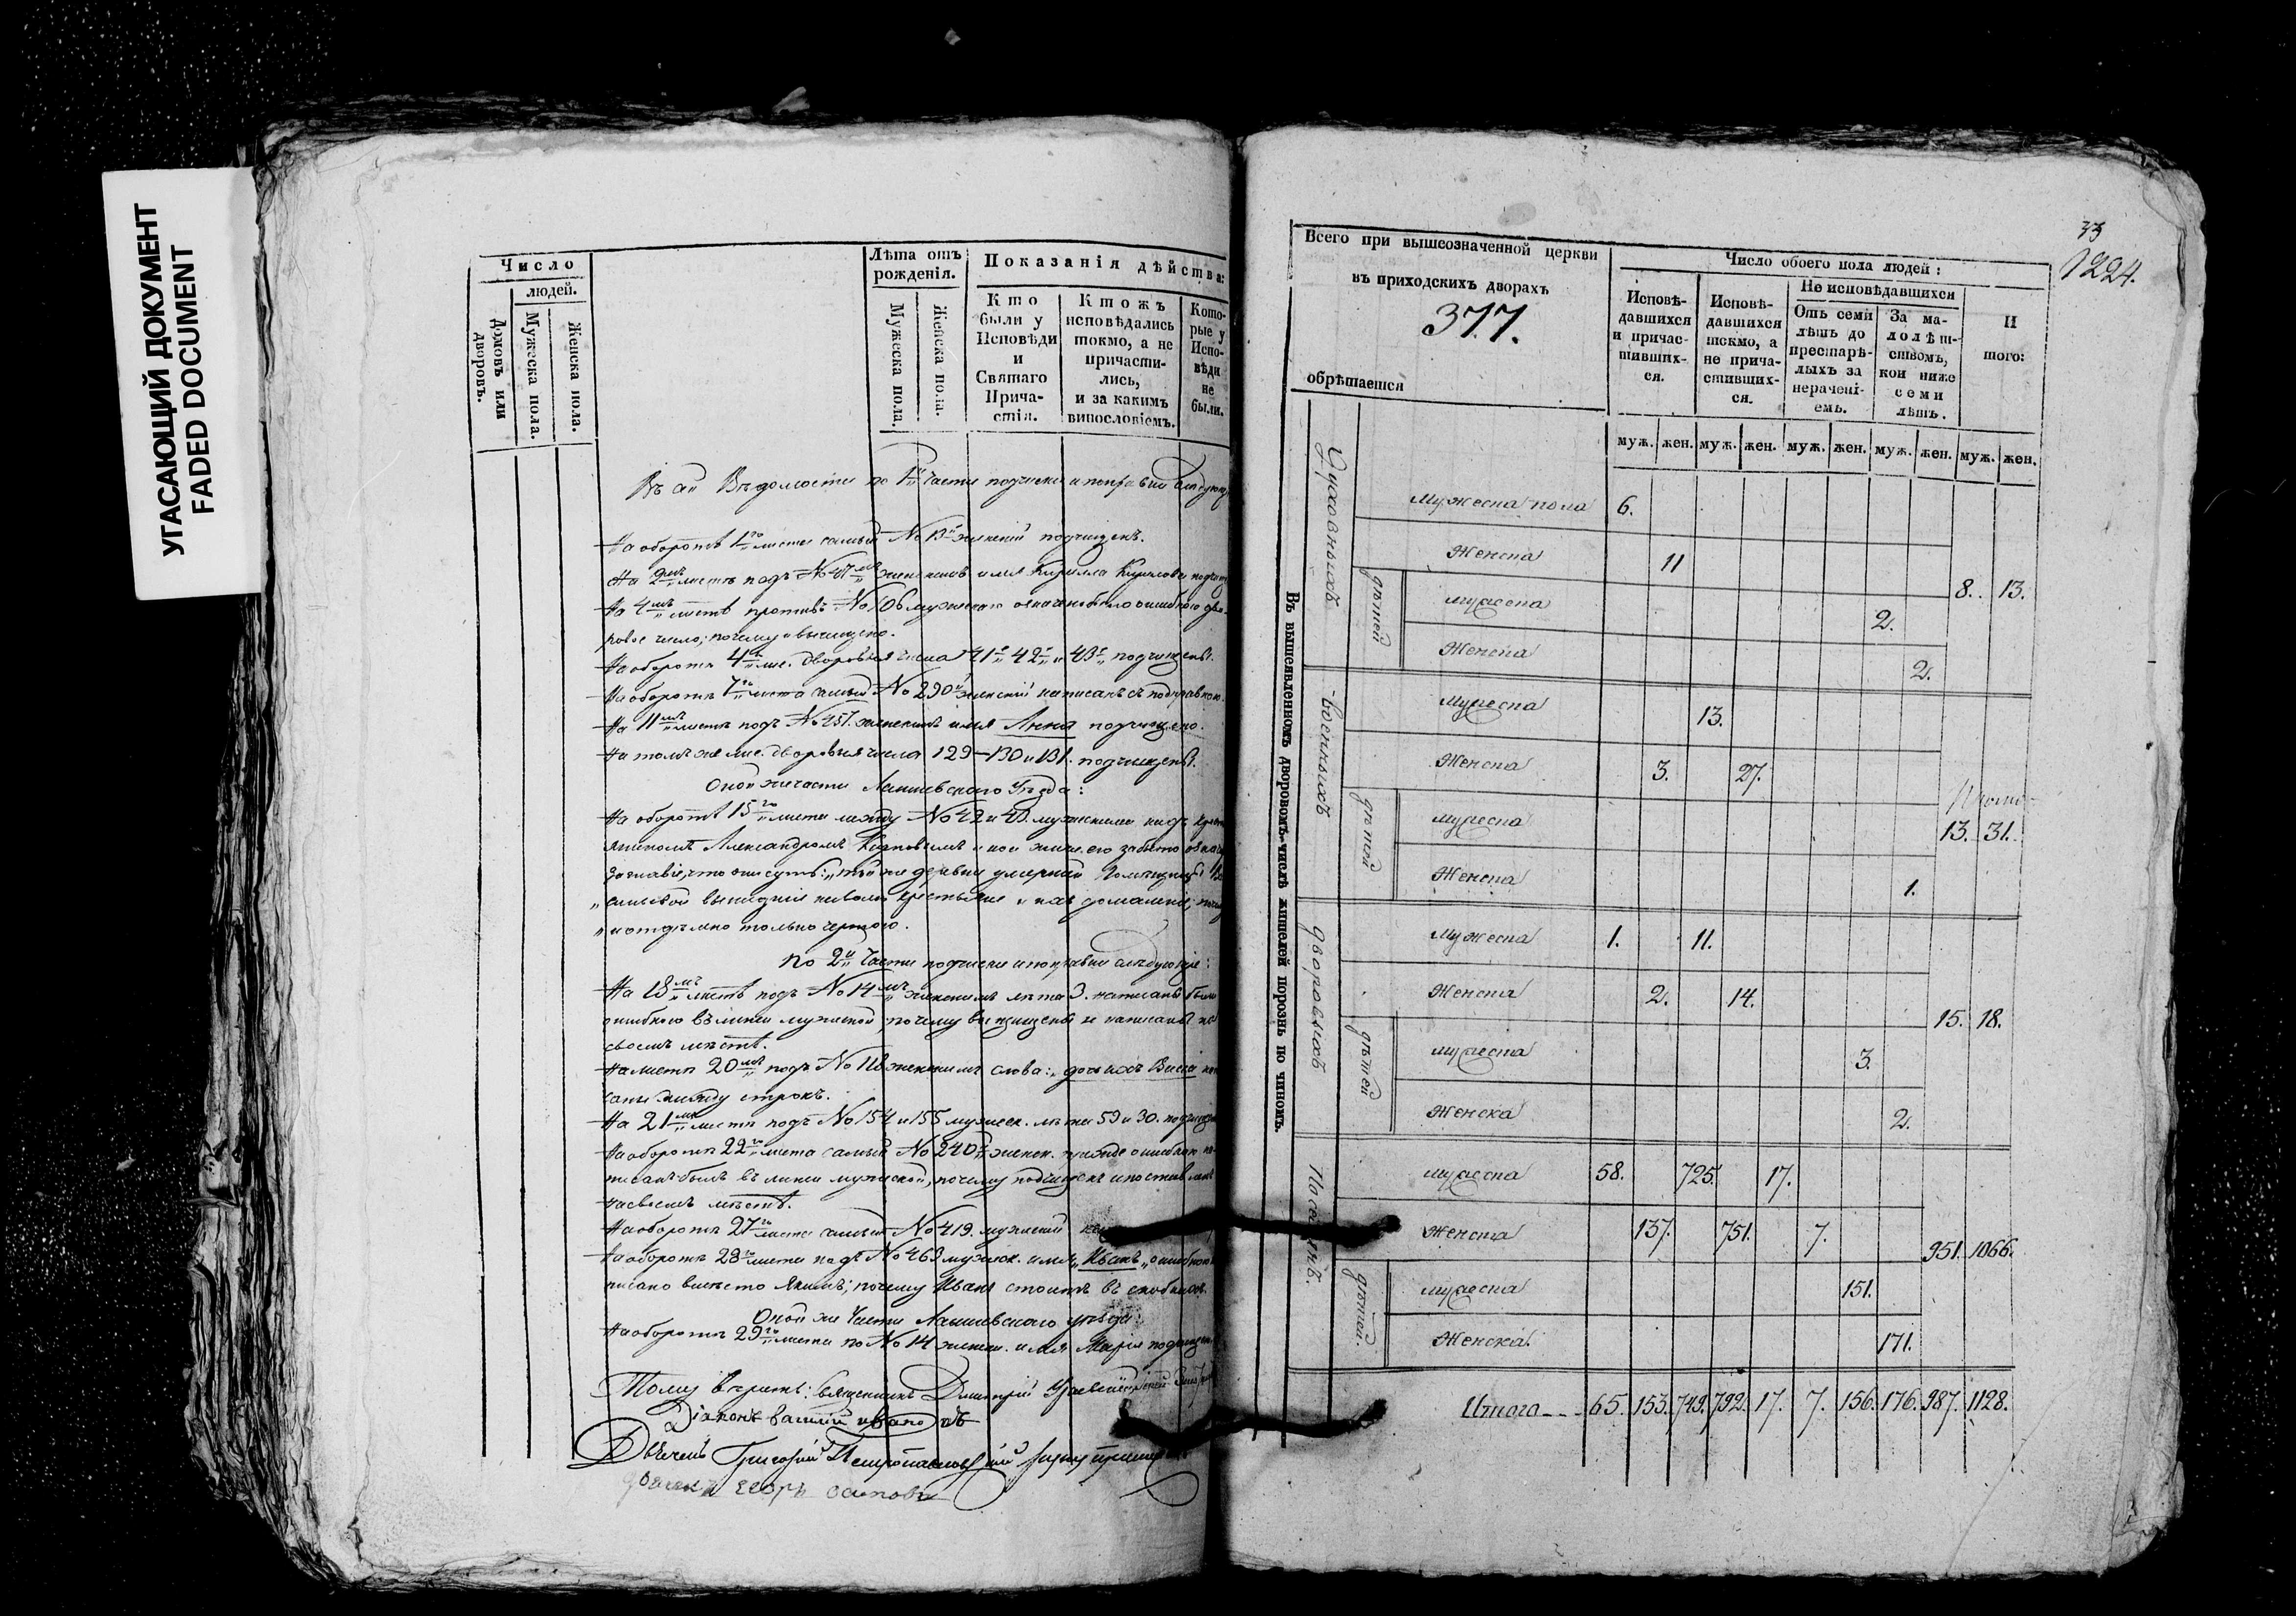 УГАСАЮЩИЙ ДОКУМЕНТ
FADED DOCUMENT
Число
людей.
Домовъ или дворовъ.
Мужеска пола.
Женска пола.
Лѣта отъ рожденія.
Мужеска пола.
Женска пола.
Показанія дѣйства:
Кто были у Исповѣди и Святаго Прича-стія.
Ктожъ исповѣдались токмо, а не причасти-лись, и за какимъ винословіемъ.
Кото-рые у Испо-вѣди не были.
Въ Вѣдомости по 1й части подчистки и поправки
На оборотѣ 1го листа самый № 13й женскій подчищенъ.
На 2мъ листѣ подъ № 47мъ женскимъ имя Кирилла
На 4мъ листѣ противъ № 106 мужескаго ошибкою дво-
ровое число; почему и вычищено.
На оборотѣ 4го лис. дворовыя числа 41е 42е и 43е подчищены.
На оборотѣ 7го листа самый № 290й женскій написанъ съ поправкою.
На 11мъ листѣ подъ № 457. женскимъ имя Анна подчищено.
На томъ же лис. дворовыя числа 129–130 и 131. подчищены.
Оной же части Лаишевскаго Уѣзда:
На оборотѣ 15го листа между № 42 и 43. мужескими надъ
Александромъ
и отдѣлено только чертою.
по 2й Части подчистки и поправки слѣдующіе:
На 18мъ листѣ подъ № 14мъ женскимъ лѣта 3. написаны были
ошибкою въ линіи мужеской, почему вычищены и написаны на
своемъ мѣстѣ.
На листѣ 20мъ подъ № 118 женскимъ слова:
саны между строкъ.
На 21мъ листѣ подъ № 154 и 155 мужеск. лѣта 59 и 30.
На оборотѣ 22го листа самый № 240й женск. прежде ошибкою на-
писанъ былъ въ линіи мужеской, почему подчищенъ и поставленъ
на своемъ мѣстѣ.
На оборотѣ 27го листа самый № 419. мужескій
На оборотѣ 28го листа подъ № 463 мужеск. имя „Иванъ„ ошибкою
писано вмѣсто Якимъ; почему Иванъ стоитъ въ скобкахъ.
Оной же Части Лаишевскаго уѣзда:
На оборотѣ 29го листа по № 14 женск. имя Марія
Тому вѣритъ: Священникъ Димитрій
Діаконъ Василій Ивановъ
Дьячекъ Григорій Петропавловскій
Егоръ Осиповъ
33
1224.
Всего при вышеозначенной церкви
въ приходскихъ дворахъ
377.
обрѣтается
Число обоего пола людей:
Исповѣ-давшихся и причас-тивших-ся.
Исповѣ-давшихся токмо, а не прича-стивших-ся.
Не исповѣдавшихся
Отъ семи лѣтъ до престарѣ-лыхъ за нерачені-емъ.
За ма-лолѣт-ствомъ, кои ниже семи лѣтъ.
И того:
муж. жен. муж. жен. муж. жен. муж. жен. муж. жен.
Въ вышеявленномъ дворовомъ числѣ жителей порознь по чиномъ.
Духовныхъ
Мужеска пола 6.
Женска 11
дѣтей
мужеска 2.
Женска 2.
8. 13.
Военныхъ
Мужеска 13.
Женска 3. 27.
дѣтей
мужеска
Женска 1.
13. 31.
дворовыхъ
Мужеска 1. 11.
Женска 2. 14.
дѣтей
мужеска 3.
Женска 2.
15. 18.
Поселянъ.
мужеска 58. 725. 17.
Женска 137. 751. 7.
дѣтей.
мужеска 151.
Женска. 171.
951. 1066.
Итого 65. 153. 749. 792. 17. 7. 156. 176. 987. 1128.